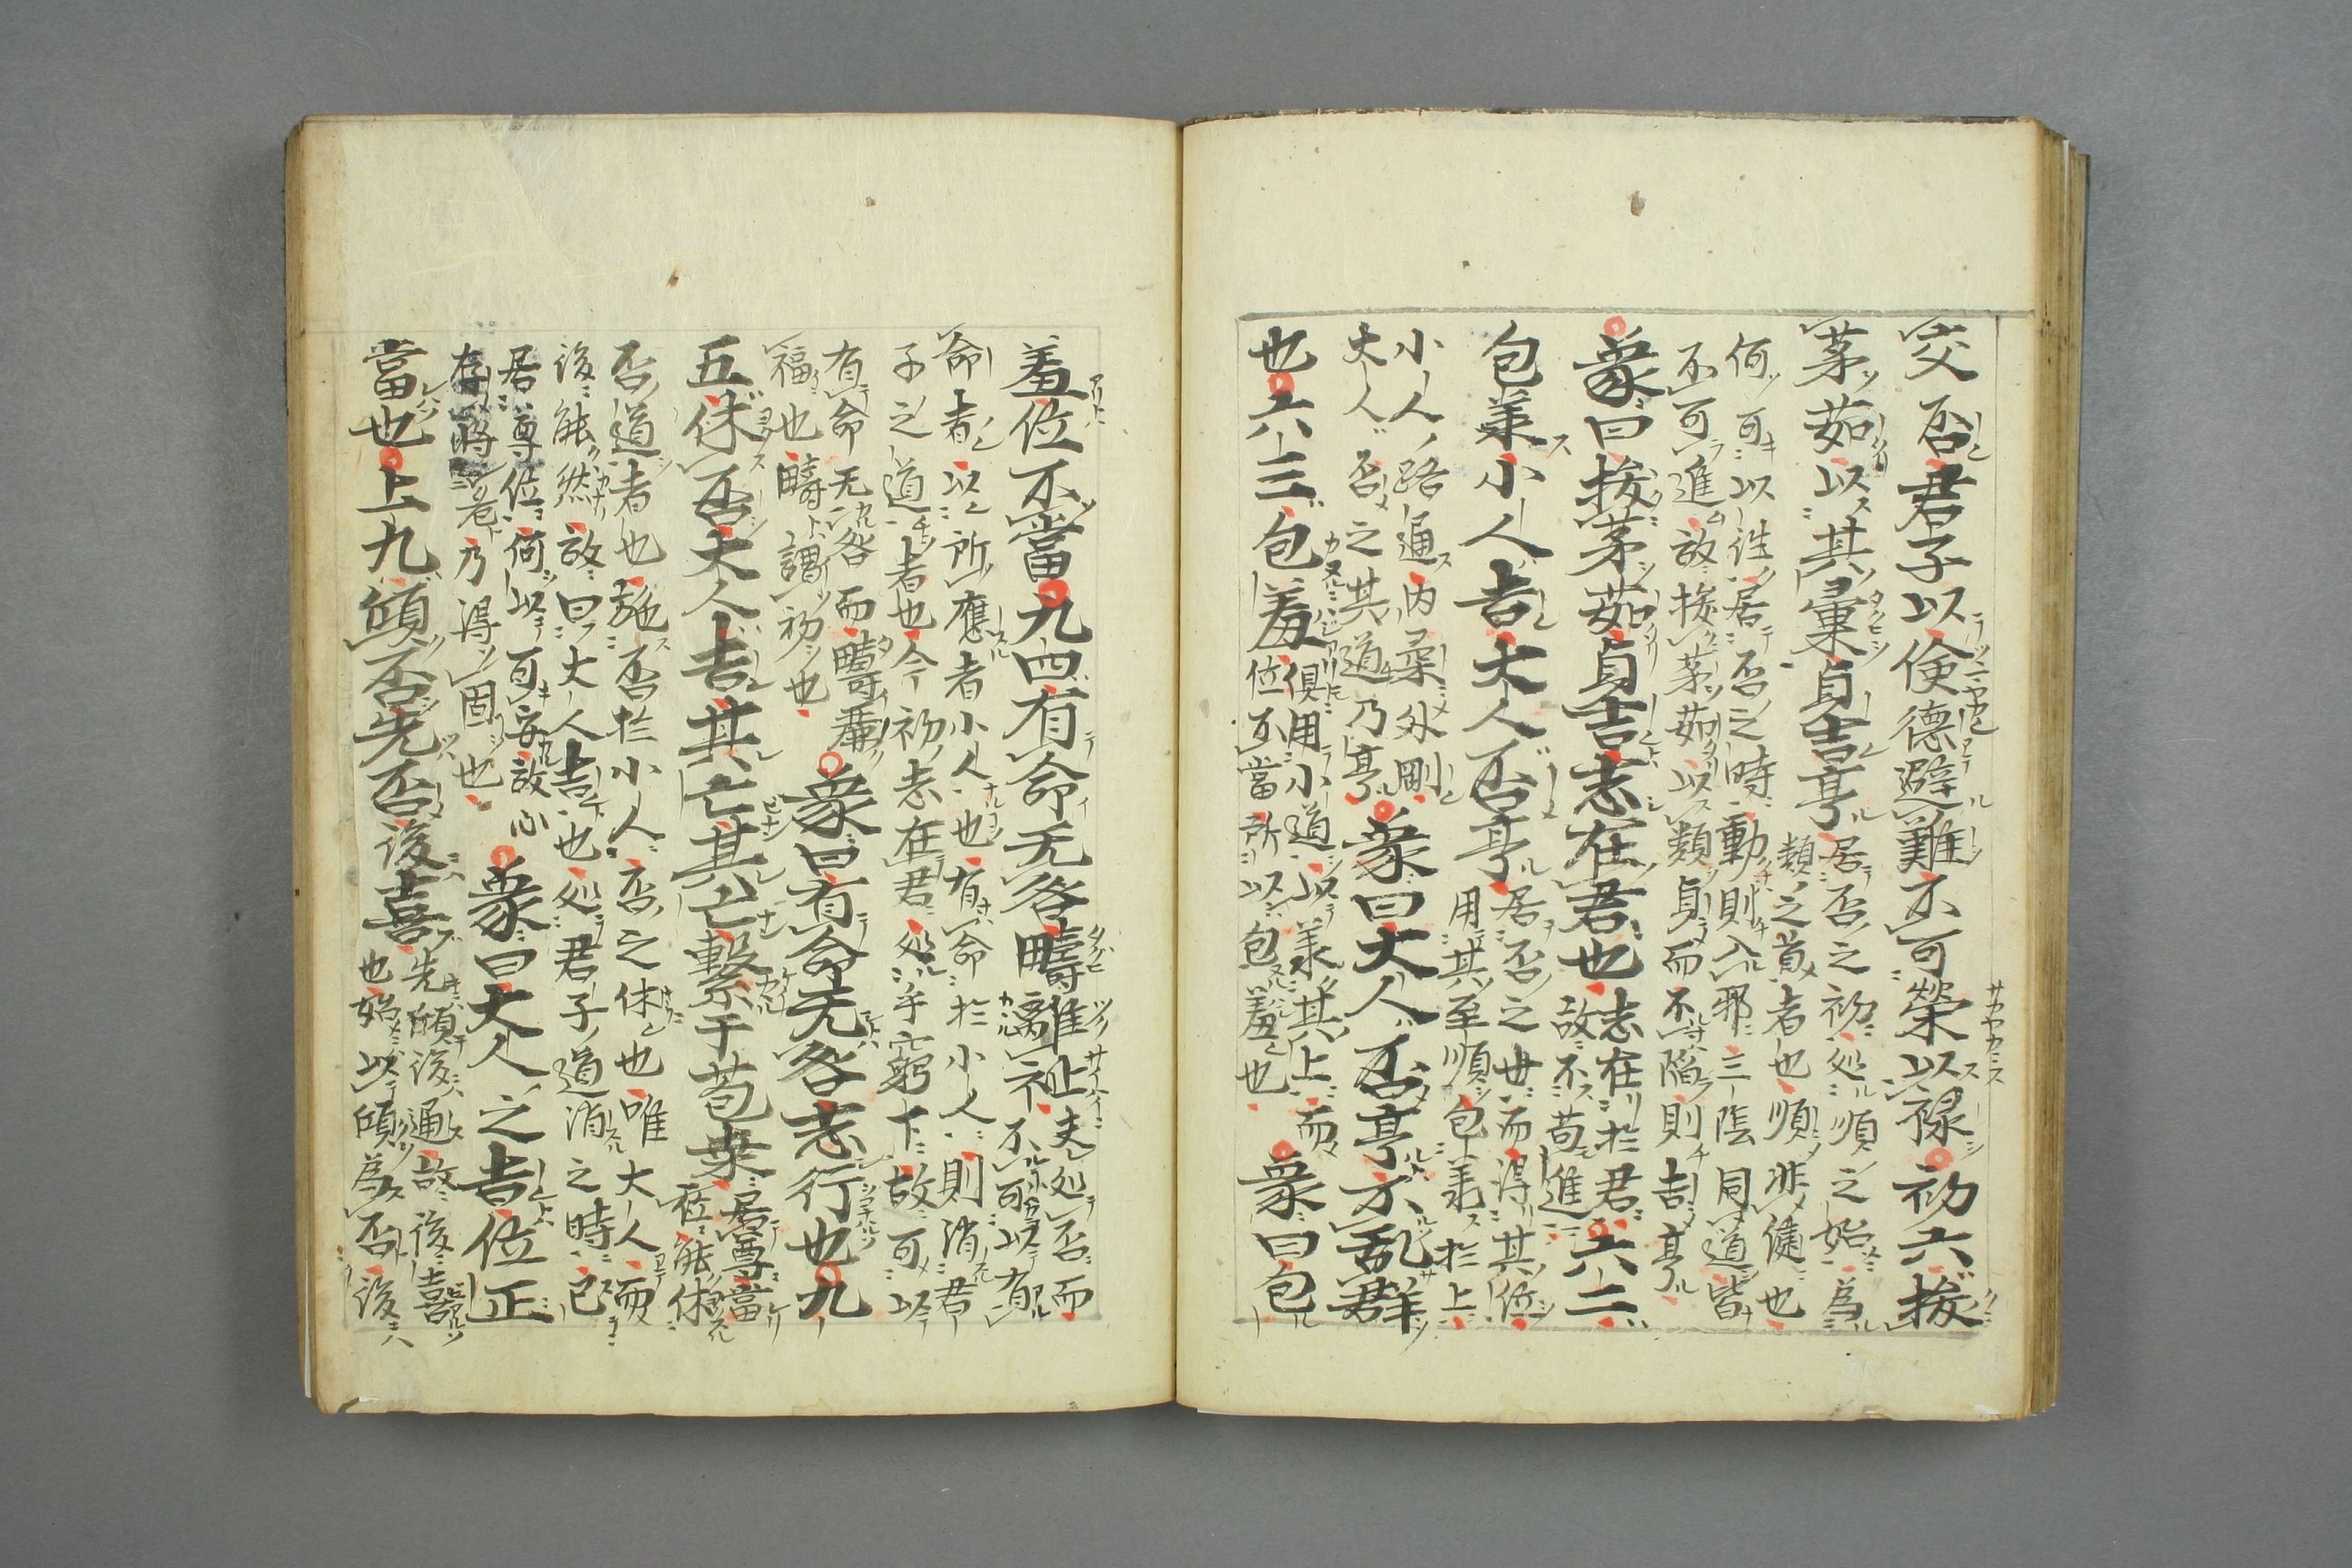 交否君子以倹德避難不可榮以祿初六拔
茅茹以其彙貞吉亨居否之初処順之始為
類之首者也順非健也
何可以往居否之時動則入邪三陰同道皆
不可進故拔茅茹以類貞而不陷則吉亨
象曰拔茅茹貞吉志在君也志在於君
故不苟進六二
包羕小人吉大人否亨居否之世而得其位
用其至順包羕於上
小人路通内柔外剛
大人否之其道乃亨象曰大人否亨不乱群
也六三包羞俱用小道以羕其上而
位不當所以包羞也象曰包
羞位不當九四有命无咎疇離祉夫処否而
不可以有
命者以所應者小人也有命於小人則消君
子之道者也今初志在君処乎窮下故可以
有命无咎而疇麗
福也疇謂初也象曰有命无咎志行也九
五休否大人吉其亡其亡繫于苞桒居尊當
位能休
否道者也施否於小人否之休也唯大人而
後能然故曰大人吉也処君子道消之時已
居尊位何以可安故心
存將危乃得固也象曰大人之吉位正
當也上九傾否先否後喜先傾後通故後喜
也始以傾為否後